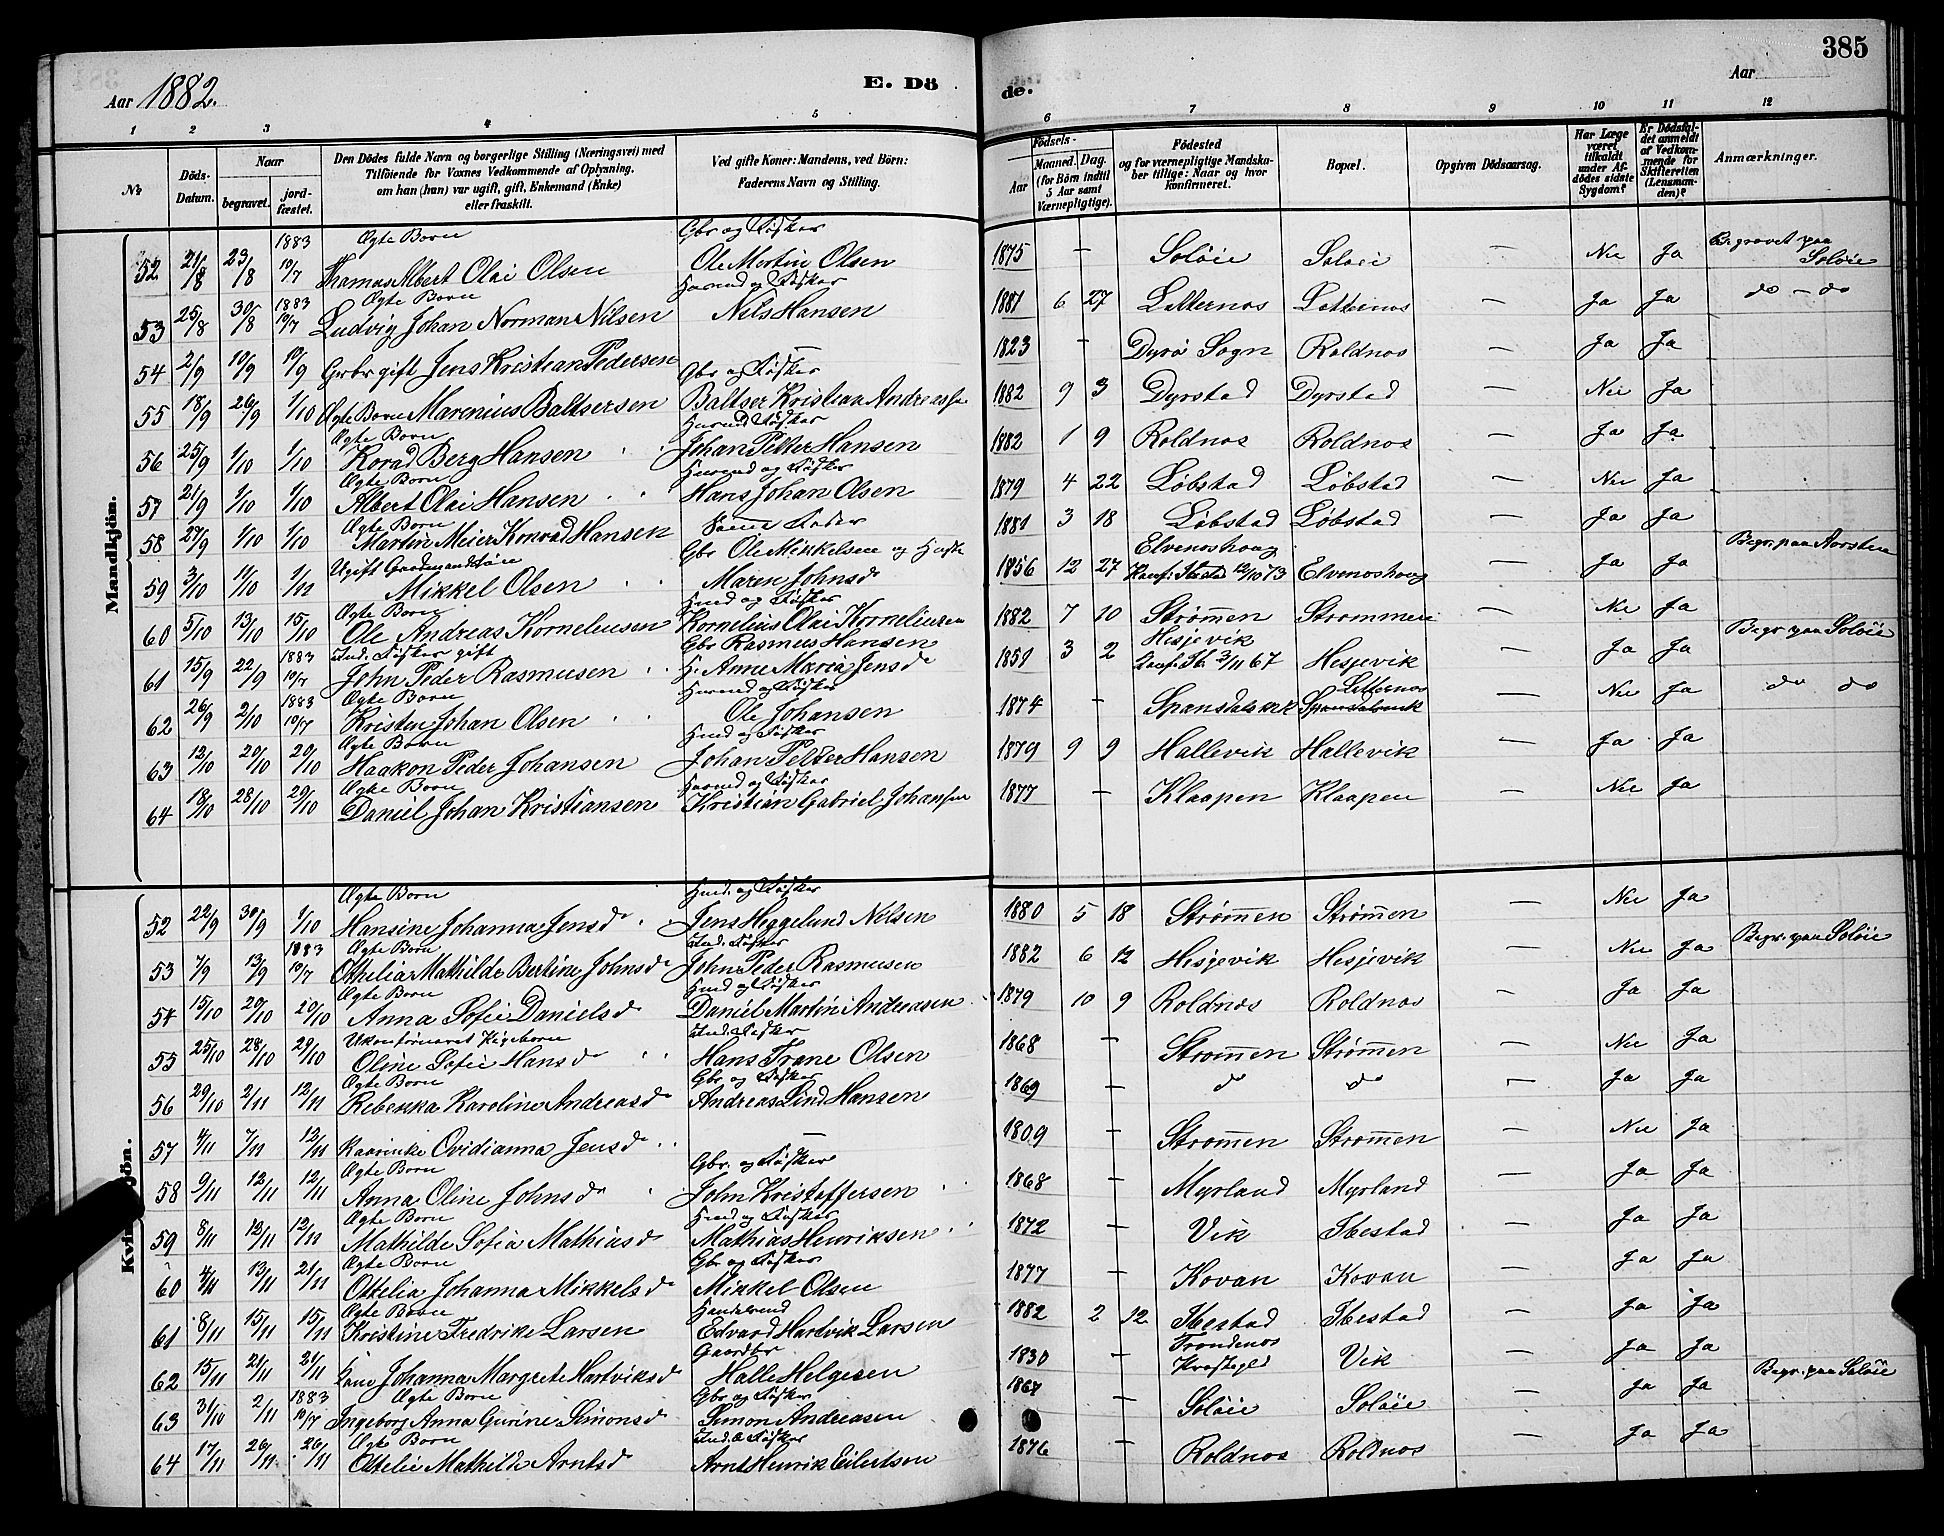 385
Aar 1882.
E. Dö
de.
Aar
1 2 3 4 5 6 7 8 9 10 11 12
No
Döds-Datum.
Naar
begravet.
jord-fæstet.
Den Dödes fulde Navn og borgerlige Stilling (Næringsvei) med
Tilföiende for Voxnes Vedkommende af Oplysning,
om han (hun) var ugift, gift, Enkemand (Enke)
eller fraskilt.
Ved gifte Koner: Mandens, ved Börn:
Faderens Navn og Stilling.
Födsels-
Aar
Maaned. Dag.
(for Börn indtil
5 Aar samt
Værnepligtige).
Födested
og for værnepligtige Mandska-
ber tillige: Naar og hvor
konfirmeret.
Bopæl.
Opgiven Dödsaarsag.
Har Læge
været
tilkaldt
under Af-
dödes sidste
Sygdom?
Er Dödsfal-
det anmeldt
af Vedkom-
mende for
Skifteretten
(Lensman-
den)?
Anmærkninger.
Mandkjön.
1883 Ægte Barn Gbr og Fisker
52 21/8 23/8 10/7 Thomas Albert Olai Olsen Ole Martin Olsen 1875 – Soløie Soløie – Nei Ja Begravet paa Soløie
1883 Ægte Barn Husmd og Fisker
53 25/8 30/8 10/7 Ludvig Johan Norman Nilsen Nils Hansen 1881 6 27 Litternos Litternos – Ja Ja do – do
54 2/9 10/9 10/9 Gbr gift Jens Kristian Pedersen – 1823 – Dyrö Sogn Roldnos – Ja Ja
Gbr og Fisker
55 18/9 26/9 1/10 Ægte Barn Marenius Baltsersen Baltser Kristian Andreassen 1882 9 3 Dyrstad Dyrstad – Nei Ja
Ægte Barn Husmd Fisker
56 25/9 1/10 1/10 Korad Berg Hansen Johan Petter Hansen 1882 1 9 Roldnos Roldnos – Ja Ja
Ægte Barn Husmd og Fisker
57 21/9 1/10 1/10 Albert Olai Hansen Hans Johan Olsen 1879 4 22 Løbstad Løbstad – Nei Ja
Ægte Barn
58 27/9 1/10 1/10 Martin Meier Konrad Hansen Samme Fader 1881 3 18 Løbstad Løbstad – Ja Ja
Ugift Gaardmandssøn Gbr Ole Mikkelsen og Hustr Elvenoshoug
59 3/10 11/10 1/12 Mikkel Olsen Maren Johnsd 1856 12 27 Konf: Ibestad 12/10 73 Elvenoshoug – Ja Ja Begr. paa Aarsten
Ægte Barn Husmd og Fisker
60 5/10 13/10 15/10 Ole Andreas Korneliusen Kornelius Olai Korneliusen 1882 7 10 Strømmen Strommen – Nei Ja
1883 Ind. Fisker gift Gbr Rasmus Hansen Hesjevik
61 15/9 22/9 10/7 John Peder Rasmusen H. Anne Maria Jensd 1859 3 2 Konf: Ib. 3/11 67 Hesjevik – Ja Ja Begr. paa Soløie
1883 Ægte Barn Husmd og Fisker Litternos
62 26/9 2/10 10/7 Kristen Johan Olsen Ole Johansen 1874 – Spansdalsvik Spansdalsvik – Nei Ja do do
Ægte Barn Husmd og Fisker
63 12/10 20/10 20/10 Haakon Peder Johansen Johan Petter Hansen 1879 9 9 Hallevik Hallevik – Ja Ja
Ægte Barn Husmd og Fisker
64 18/10 28/10 29/10 Daniel Johan Kristiansen Kristian Gabriel Johansen 1877 – Klaapen Klaapen – Nei Ja
Kvindkjön.
Ægte Barn Husmd. og Fisker
52 22/9 30/9 1/10 Hansine Johanna Jensd Jens Heggelund Nilsen 1880 5 18 Strømmen Strømmen – Nei Ja
1883 Ægte Barn Ind. Fisker
53 7/9 13/9 10/7 Otheliar Mathilde Bertine Johnsd John Peder Rasmusen 1882 6 12 Hesjevik Hesjevik – Nei Ja Begr. paa Soløie
Ægte Barn Husmd og Fisker
54 15/10 20/10 20/10 Anna Sofie Danielsd Daniel Martin Andreasen 1879 10 9 Roldnos Roldnos – Ja Ja
Ukonfirmeret Pigebarn Ind. Fisker
55 25/10 28/10 29/10 Oline Sofie Hansd Hans Trane Olsen 1868 – Strommen Strømmen – Nei Ja
Ægte Barn Gbr og Fisker
56 29/10 2/11 12/11 Rebekka Karoline Andreasd Andreas Lind Hansen 1869 – do do – Ja Ja
57 4/11 7/11 12/11 Kaarinke Ovidianna Jensd – 1809 – Strommen Strommen – Nei Ja
Ægte Barn Gbr. og Fisker
58 9/11 12/11 12/11 Anna Oline Johnsd John Kristoffersen 1868 – Myrland Myrland – Ja Ja
Ægte Barn Husmd og Fisker
59 8/11 12/11 12/11 Mathilde Sofia Mathiasd Mathias Henriksen 1872 – Vik Ibestad – Ja Ja
Ægte Barn Gbr og Fisker
60 4/11 13/11 21/11 Othelia Johanna Mikkelsd Mikkel Olsen 1877 – Kovan Kovan – Ja Ja
Ægte Barn Handelsmd
61 8/11 15/11 15/11 Kristine Fredrike Larsen Edvard Hartvik Larsen 1882 2 12 Ibestad Ibestad – Ja Ja
Gaardbr Trondenos
62 15/11 21/11 21/11 Johanna Margrete Hartviksd Halle Helgesen 1830 Vik – Ja Ja
1883 Ægte Barn Gbr og Fisker
63 31/10 2/11 10/7 Ingeborg Anna Gurine Simonsd Simon Andreasen 1867 – Soløie Soløie – Ja Ja Begr. paa Soløie
Ægte Barn Ind. & Fisker
64 17/11 26/11 26/11 Othelie Mathilde Arntsd Arnt Henrik Eilertsen 1876 – Roldnos Roldnos – Ja Ja